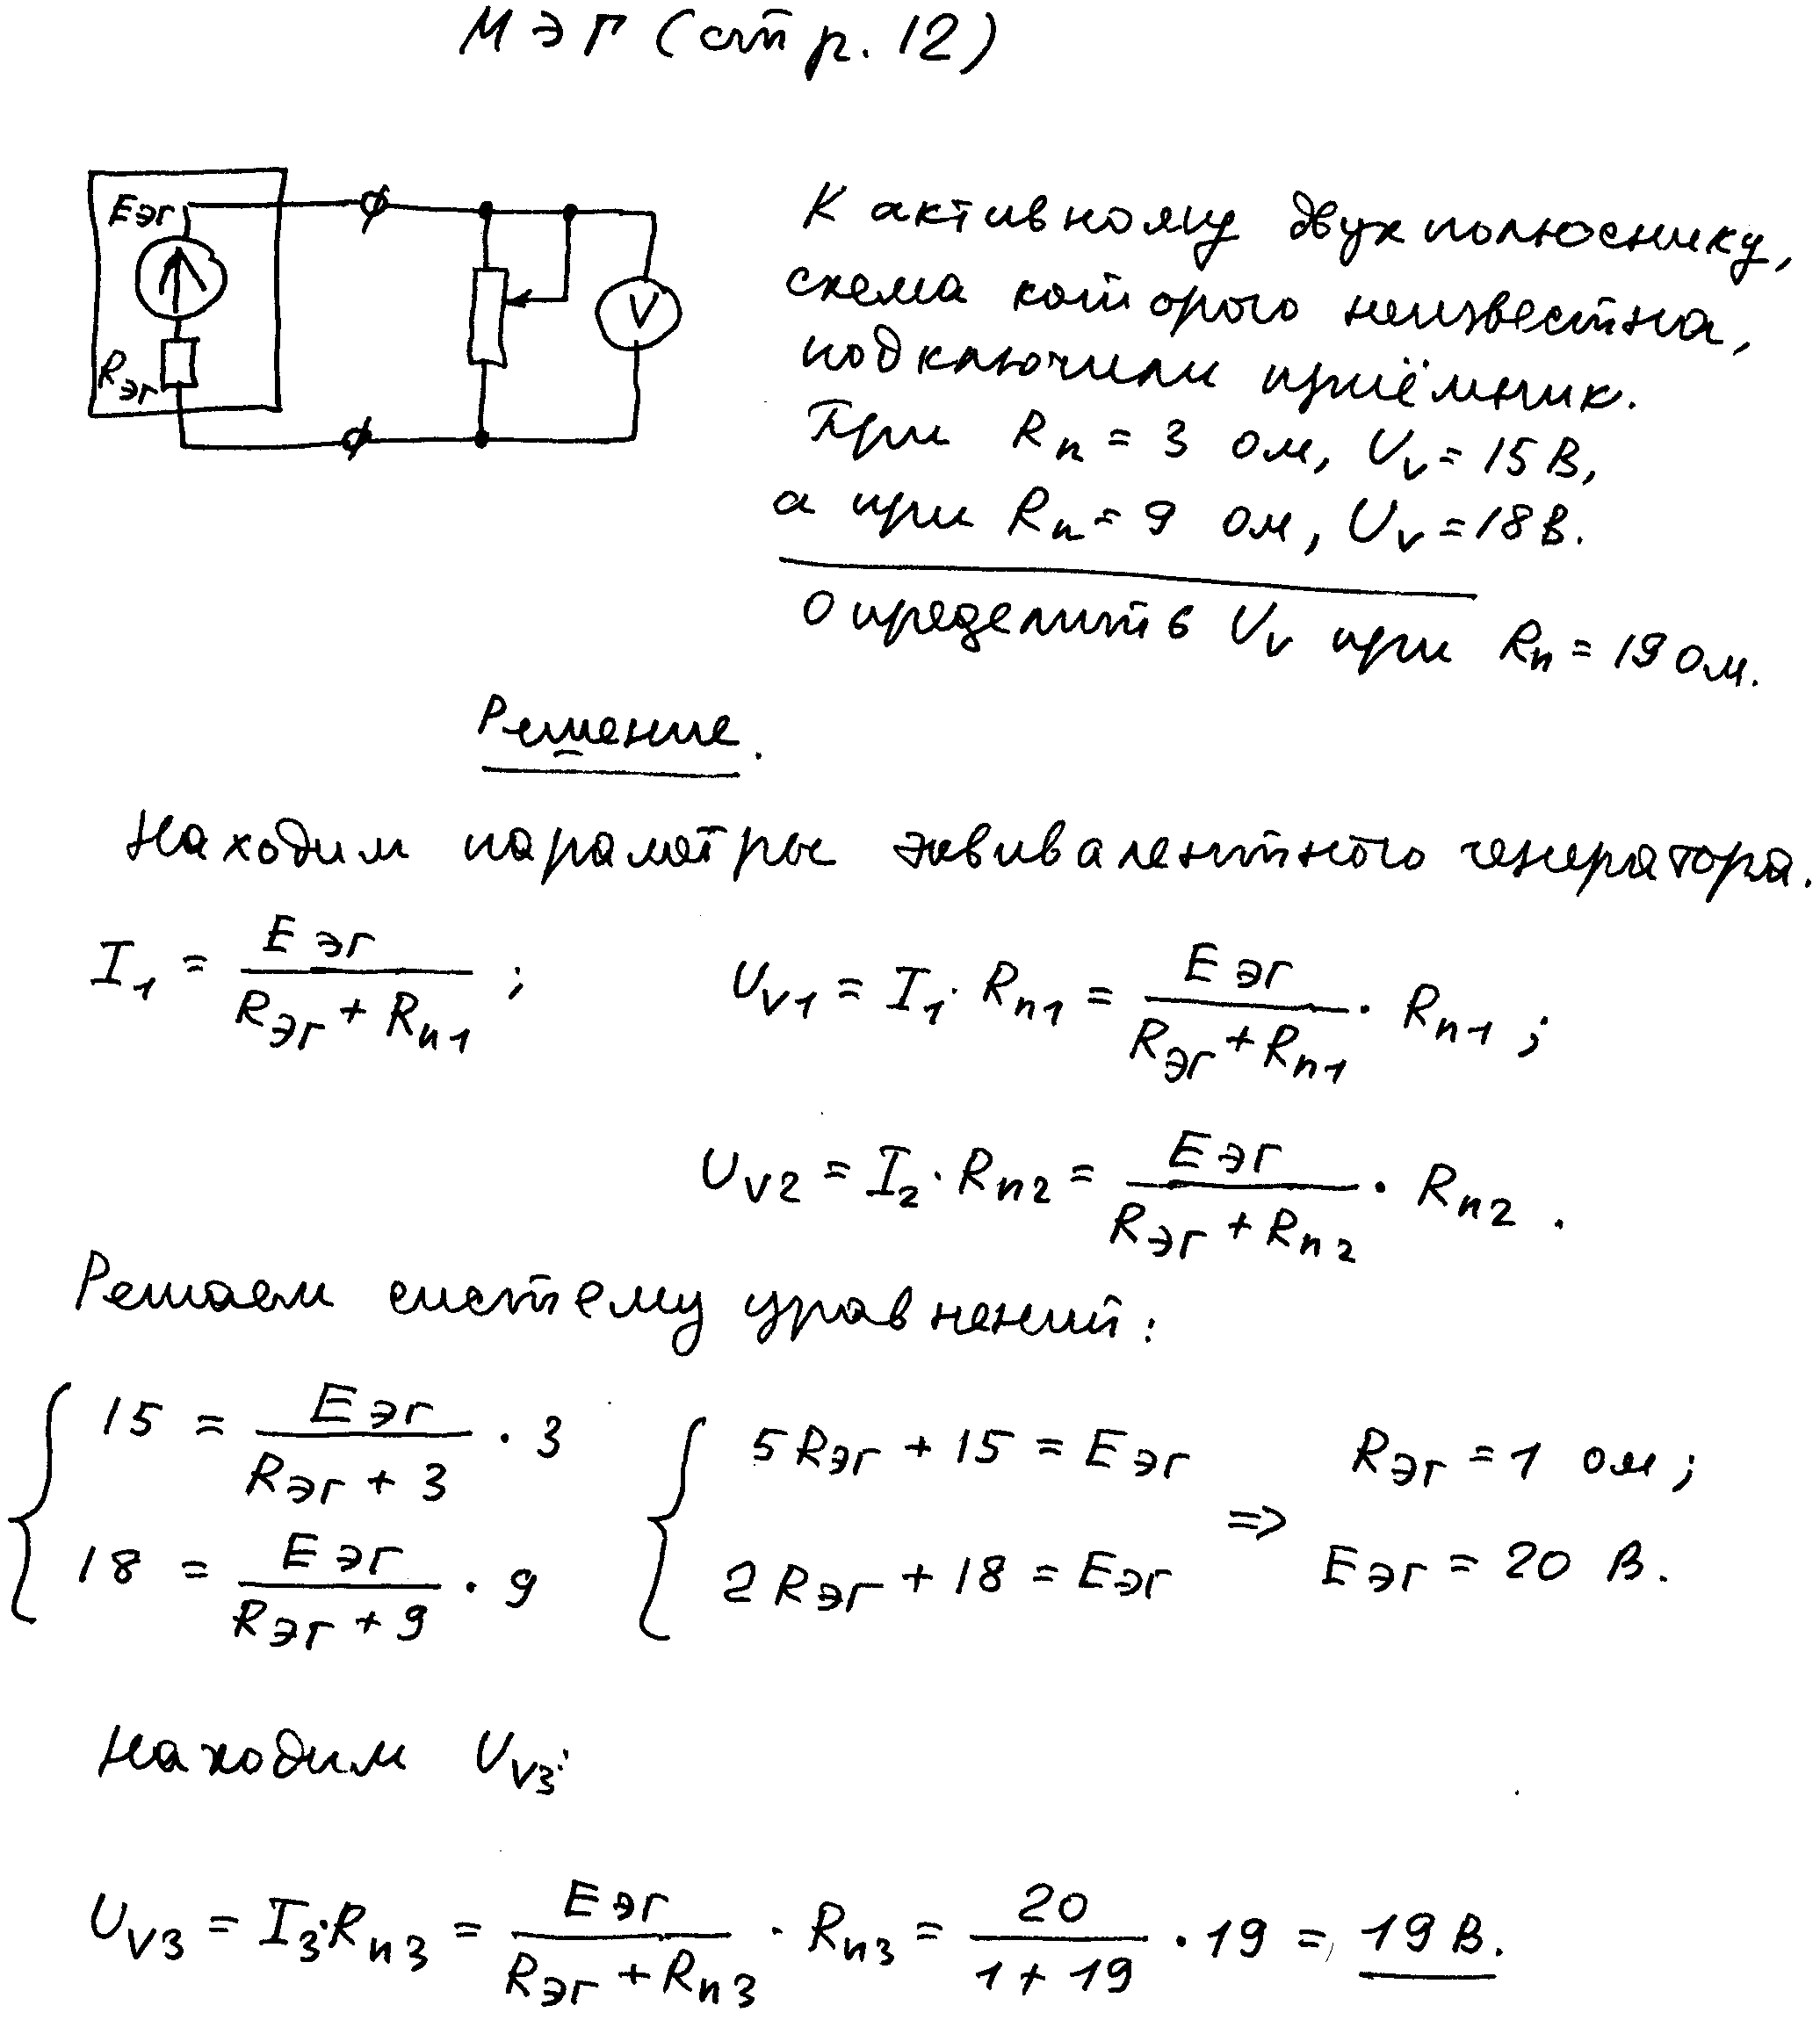 МЭГ (стр. 12)
Eэг
Rэг
V
К активному двухполюснику,
схема которого неизвестна,
подключили приёмник.
При Rп = 3 Ом, Uv = 15 В,
а при Rп = 9 Ом, Uv = 18 В.
Определить Uv при Rп = 19 Ом.
Решение.
Находим параметры эквивалентного генератора.
I1 = Eэг / (Rэг + Rп1) ; Uv1 = I1 · Rп1 = Eэг / (Rэг + Rп1) · Rп1 ;
Uv2 = I2 · Rп2 = Eэг / (Rэг + Rп2) · Rп2 .
Решаем систему уравнений:
{ 15 = Eэг / (Rэг + 3) · 3 { 5Rэг + 15 = Eэг => Rэг = 1 Ом ;
18 = Eэг / (Rэг + 9) · 9 2Rэг + 18 = Eэг Eэг = 20 В.
Находим Uv3:
Uv3 = I3 · Rп3 = Eэг / (Rэг + Rп3) · Rп3 = 20 / (1 + 19) · 19 = 19 В.